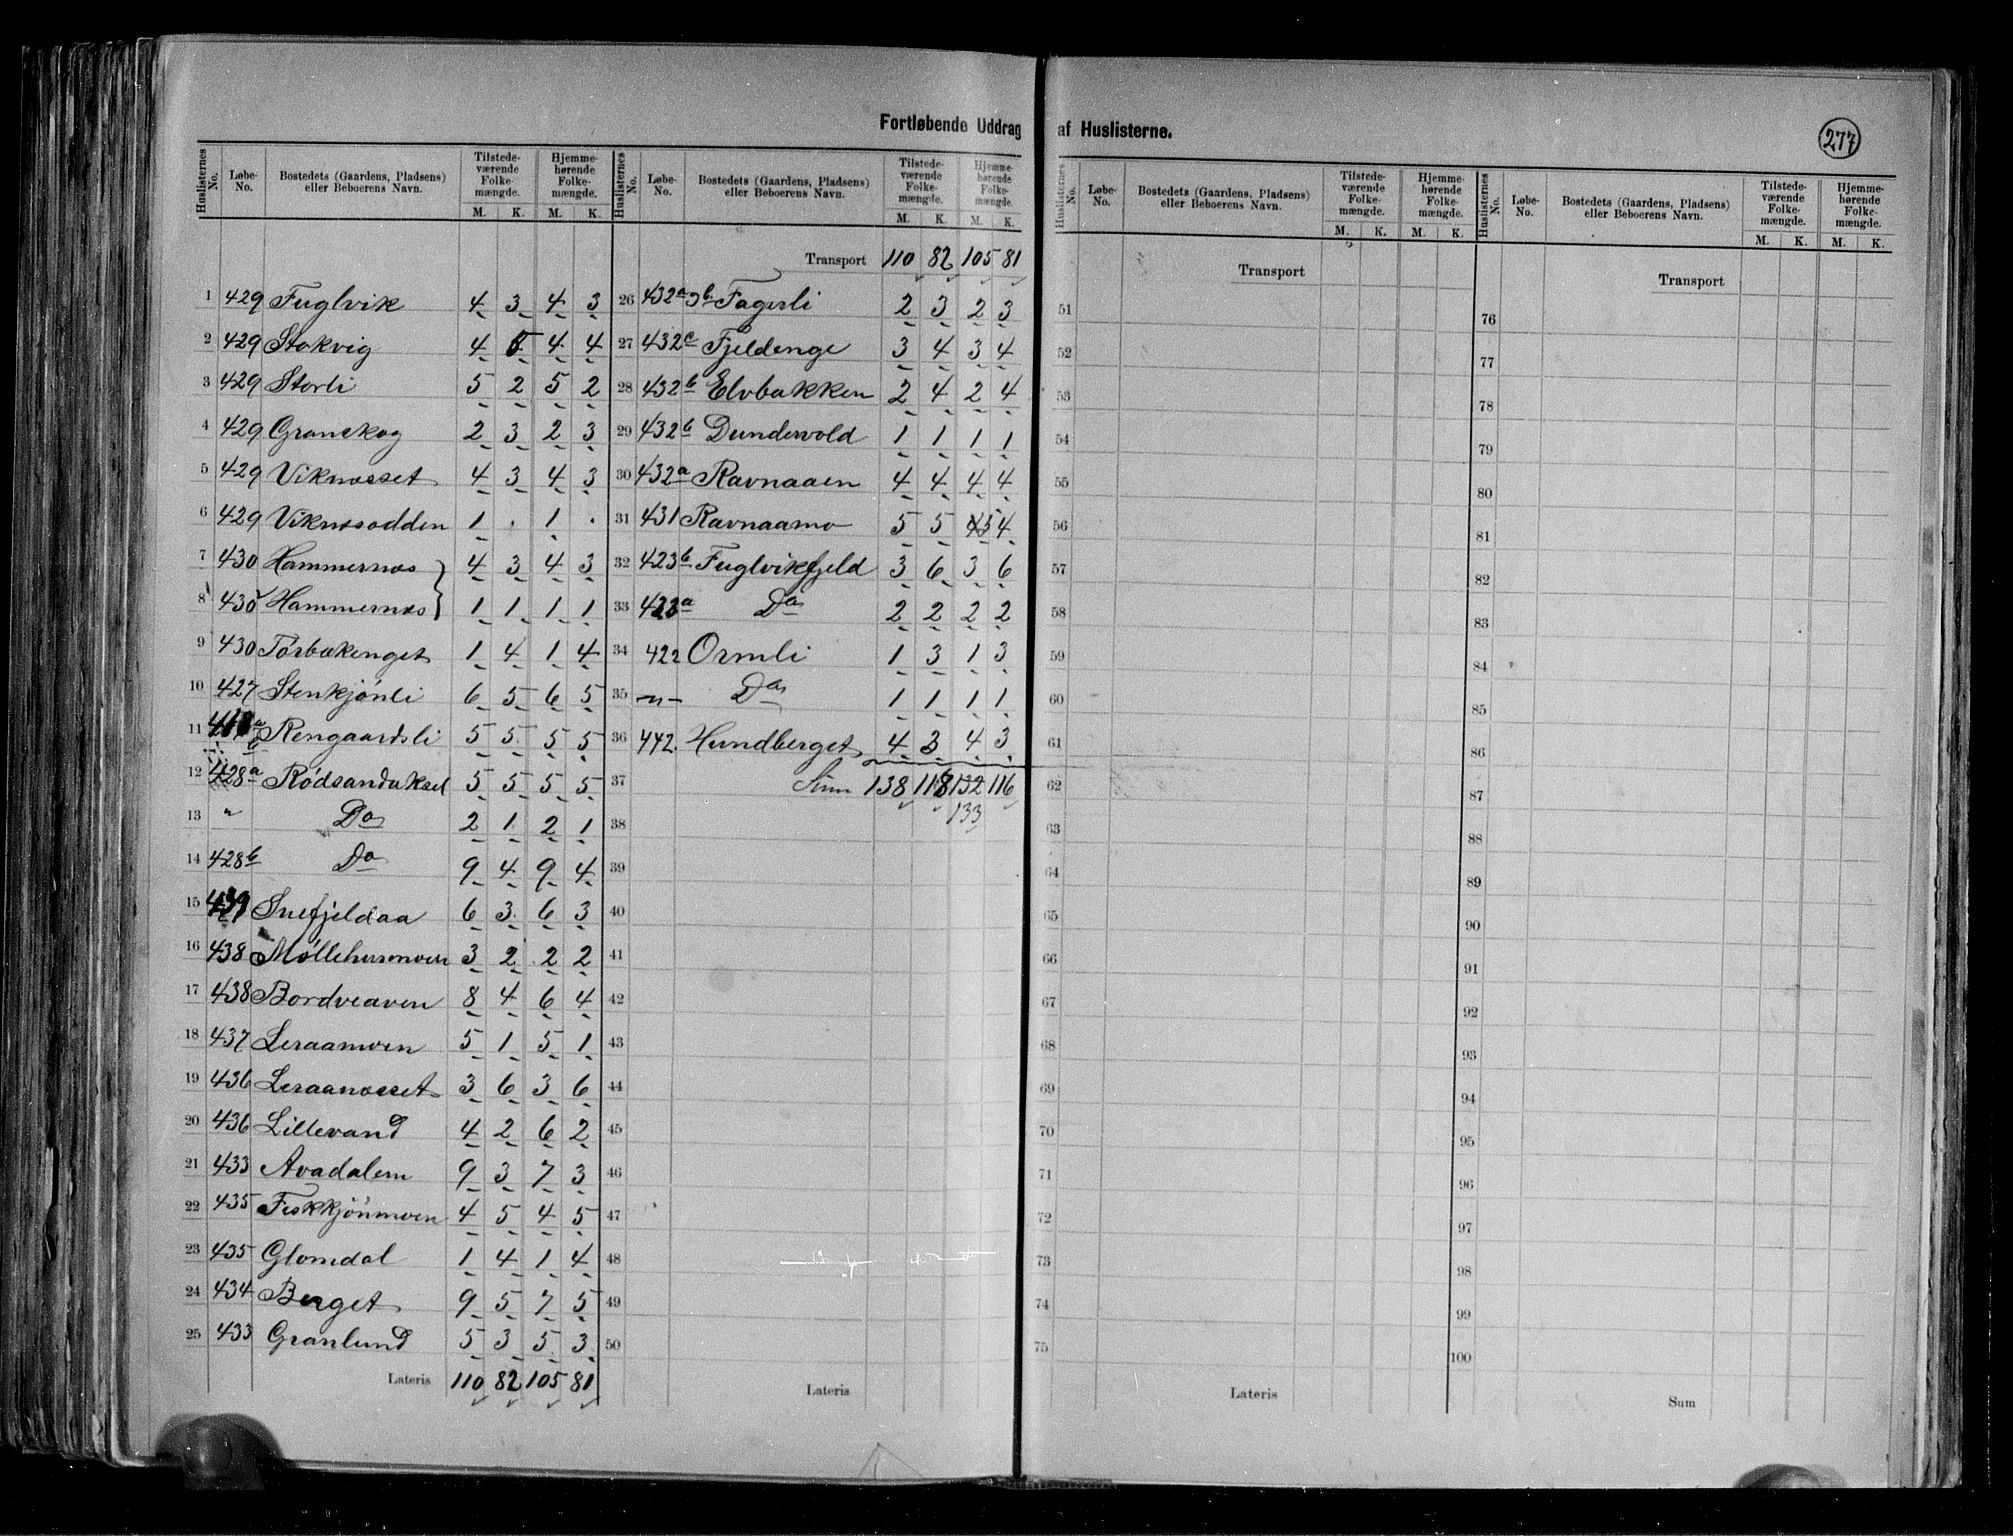 Fortløbende Uddrag af Huslisterne.
277
Huslisternes No. | Løbe-No. | Bostedets (Gaardens, Pladsens) eller Beboerens Navn. | Tilstedeværende Folkemængde. M. K. | Hjemmehørende Folkemængde. M. K.
1 429 Fuglvik 4 3 4 3
2 429 Stokvig 4 5 4 4
3 429 Storli 5 2 5 2
4 429 Granskog 2 3 2 3
5 429 Viknæsset 4 3 4 3
6 429 Viknæsodden 1 . 1 .
7 430 Hammernæs 4 3 4 3
8 430 Hammernæs 1 1 1 1
9 430 Torbækenget 1 4 1 4
10 427 Stenkjønli 6 5 6 5
11 Rengaardsli 5 5 5 5
12 428a Rødsandaksel 5 5 5 5
13 " Do 2 1 2 1
14 428b Do 9 4 9 4
15 439 Snefjeldaa 6 3 6 3
16 438 Møllehusmoen 3 2 2 2
17 438 Bordveaven 8 4 6 4
18 437 Leraamoen 5 1 5 1
19 436 Leraanæsset 3 6 3 6
20 436 Lillevand 4 2 6 2
21 433 Avadalem 9 3 7 3
22 435 Fiskkjønmoen 4 5 4 5
23 435 Glomdal 1 4 1 4
24 434 Berget 9 5 7 5
25 433 Granlund 5 3 5 3
Lateris 110 82 105 81
Huslisternes No. | Løbe-No. | Bostedets (Gaardens, Pladsens) eller Beboerens Navn. | Tilstedeværende Folkemængde. M. K. | Hjemmehørende Folkemængde. M. K.
Transport 110 82 105 81
26 432a Fagerli 2 3 2 3
27 432c Fjeldenge 3 4 3 4
28 432b Elvbakken 2 4 2 4
29 432b Dundervold 1 1 1 1
30 432a Ravnaaen 4 4 4 4
31 431 Ravnaamo 5 5 5 4
32 423b Fuglvikfjeld 3 6 3 6
33 423a Do 2 2 2 2
34 422 Ormli 1 3 1 3
35 -"- Do 1 1 1 1
36 442. Hundberget 4 3 4 3
37 Sum 138 118 132 116
38 133
39
40
41
42
43
44
45
46
47
48
49
50
Lateris
Huslisternes No. | Løbe-No. | Bostedets (Gaardens, Pladsens) eller Beboerens Navn. | Tilstedeværende Folkemængde. M. K. | Hjemmehørende Folkemængde. M. K.
Transport
51
52
53
54
55
56
57
58
59
60
61
62
63
64
65
66
67
68
69
70
71
72
73
74
75
Lateris
Huslisternes No. | Løbe-No. | Bostedets (Gaardens, Pladsens) eller Beboerens Navn. | Tilstedeværende Folkemængde. M. K. | Hjemmehørende Folkemængde. M. K.
Transport
76
77
78
79
80
81
82
83
84
85
86
87
88
89
90
91
92
93
94
95
96
97
98
99
100
Sum